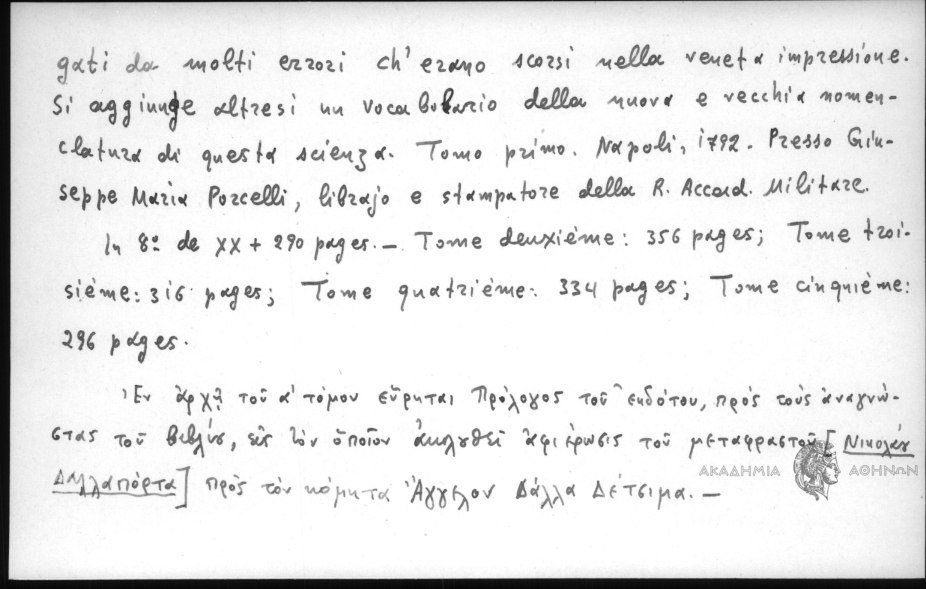 gati da molti errori ch'erano scorsi nella veneta impressione.
Si aggiunge altresì un vocabolario della nuova e vecchia nomen-
clatura di questa scienza. Tomo primo. Napoli, 1792. Presso Giu-
seppe Maria Porcelli, librajo e stampatore della R. Accad. Militare.
In 8º de XX + 290 pages. — Tome deuxiéme: 356 pages; Tome troi-
siéme: 316 pages; Tome quatriéme: 334 pages; Tome cinquiéme:
296 pages.
Ἐν ἀρχῇ τοῦ α' τόμου εὕρηται Πρόλογος τοῦ ἐκδότου, πρὸς τοὺς ἀναγνώ-
στας τοῦ βιβλίου, εἰς τὸν ὁποῖον ἀκολουθεῖ ἀφιέρωσις τοῦ μεταφραστοῦ [Νικολάου
Δαλλαπόρτα] πρὸς τὸν κόμητα Ἄγγελον Δάλλα Δέτσιμα. —
ΑΚΑΔΗΜΙΑ ΑΘΗΝΩΝ